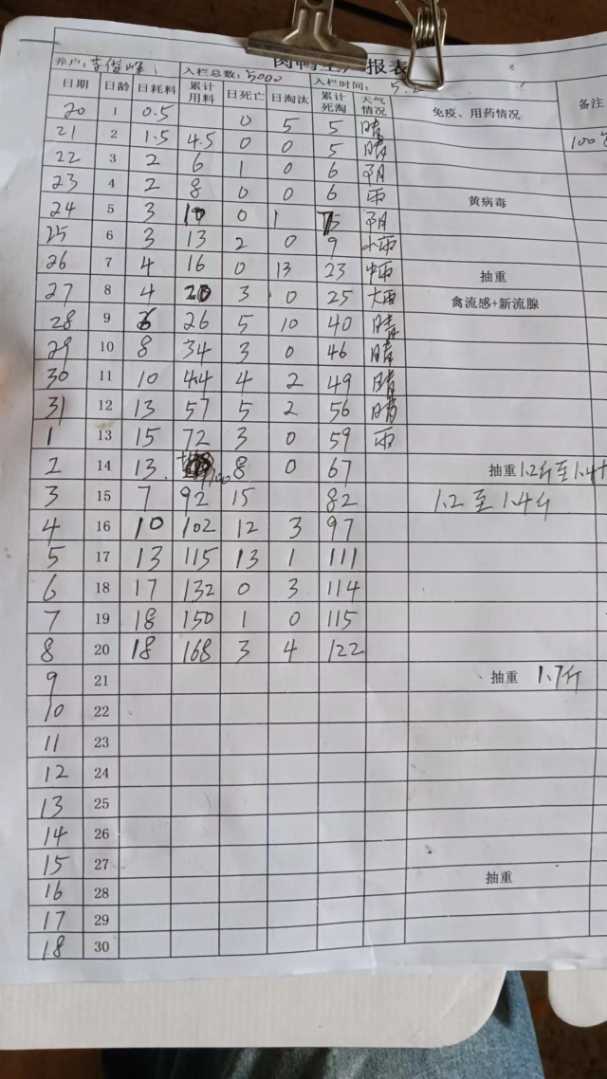 报表
养户: 入栏总数: 5000 入栏时间:
日期 日龄 日耗料 累计用料 日死亡 日淘汰 累计死淘 天气情况 免疫、用药情况 备注
20 1 0.5 0 5 5 晴
21 2 1.5 4.5 0 0 5 晴
22 3 2 6 1 0 6 阴
23 4 2 8 0 0 6 雨 黄病毒
24 5 3 10 0 1 阴
25 6 3 13 2 0 9 小雨
26 7 4 16 0 13 23 中雨 抽重
27 8 4 20 3 0 25 大雨 禽流感+新流腺
28 9 6 26 5 10 40 晴
29 10 8 34 3 0 46 晴
30 11 10 44 4 2 49 晴
31 12 13 57 5 2 56 晴
1 13 15 72 3 0 59 雨
2 14 13 8 0 67 抽重 1.2斤至1.4
3 15 7 92 15 82 1.2至1.4斤
4 16 10 102 12 3 97
5 17 13 115 13 1 111
6 18 17 132 0 3 114
7 19 18 150 1 0 115
8 20 18 168 3 4 122
9 21 抽重 1.7斤
10 22
11 23
12 24
13 25
14 26
15 27
16 28 抽重
17 29
18 30